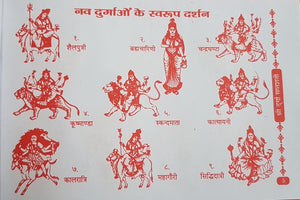 नव दुर्गाओं के स्वरूप दर्शन
१.
शैलपुत्री
२.
ब्रह्मचारिणी
३.
चन्द्रघण्टा
४.
कूष्माण्डा
५.
स्कन्दमाता
६.
कात्यायनी
७.
कालरात्रि
८.
महागौरी
९.
सिद्धिदात्री
श्री दुर्गा सप्तशती